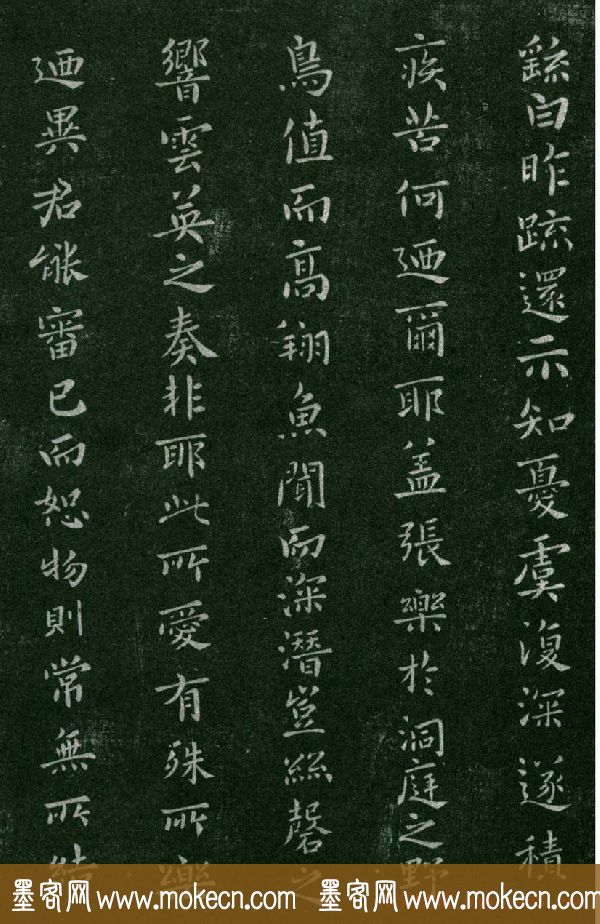 繇白昨疏還示知憂虞復深遂積
疾苦何迺爾耶盖張樂於洞庭之野
鳥值而高翔魚聞而深潛豈絲磬之
響雲英之奏非耶此所愛有殊所樂
迺異君能審己而恕物則常無所結
墨客网 www.mokecn.com 墨客网 www.mokecn.com